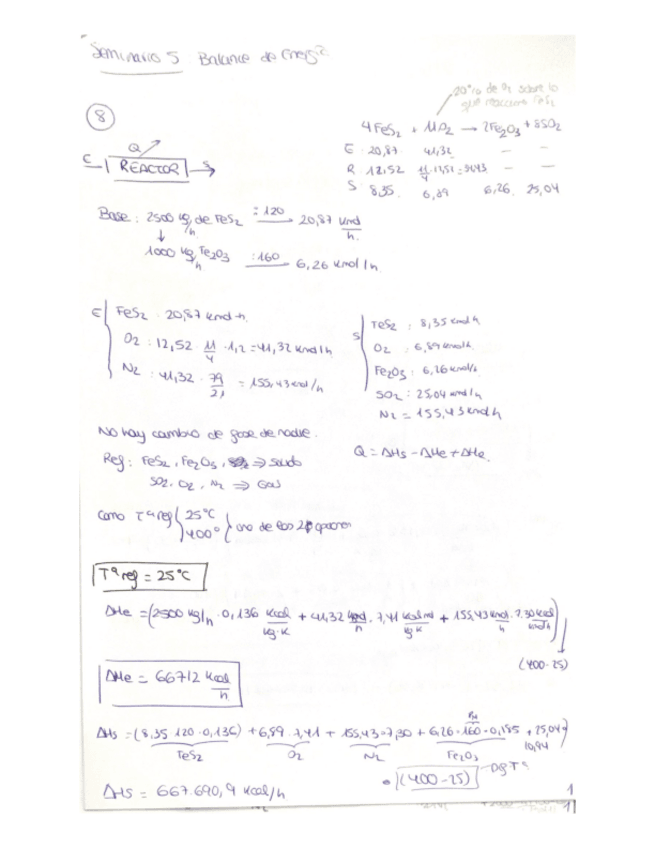 Seminario 5 Balance de Energía
20% de O2 sobre lo que reacciona FeS2
8
4FeS2 + 11O2 → 2Fe2O3 + 8SO2
E 20,87 41,32 — —
R 12,52 11/4·12,51=34,43 — —
S 8,35 6,89 6,26 25,04
Q
E REACTOR S
Base: 2500 kg/h de FeS2 :120 20,87 kmol/h
↓
1000 kg/h Fe2O3 :160 6,26 kmol/h
E
FeS2: 20,87 kmol/h
O2: 12,52 · 11/4 · 1,2 = 41,32 kmol/h
N2: 41,32 · 79/21 = 155,43 kmol/h
S
FeS2: 8,35 kmol/h
O2: 6,89 kmol/h
Fe2O3: 6,26 kmol/h
SO2: 25,04 kmol/h
N2 = 155,43 kmol/h
No hay cambio de fase de nadie.
Ref: FeS2, Fe2O3, ⇒ solido
SO2, O2, N2 ⇒ Gas
Q = ΔHs - ΔHe + ΔHe
Como Tª ref 25°C
400° uno de los 2 opciones
Tª ref = 25°C
ΔHe = (2500 kg/h · 0,136 kcal/kg·K + 41,32 kmol/h · 7,41 kcal/kg·K + 155,43 kmol/h · 7,30 kcal/kmol·K)
(400-25)
ΔHe = 66712 kcal/h
ΔHs = (8,35·120·0,136) + 6,89·7,41 + 155,43·7,30 + 6,26·160·0,185 + 25,04·10,94)
FeS2 O2 N2 Fe2O3
· (400-25)
ΔHs = 667.690,9 kcal/h
1